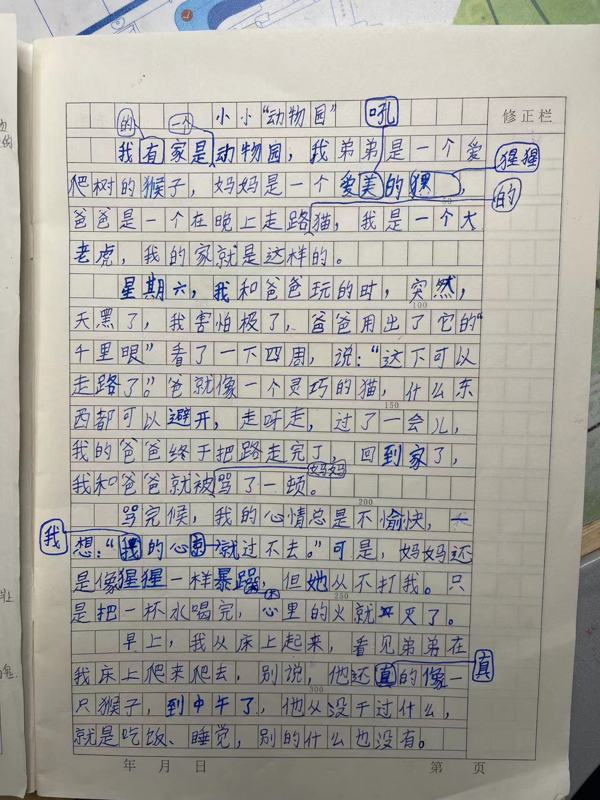 小小“动物园” 吼
的 一个
我有家是动物园，我弟弟是一个爱
爬树的猴子，妈妈是一个爱美的猩猩，
的
爸爸是一个在晚上走路猫，我是一个大
老虎，我的家就是这样的。
星期六，我和爸爸玩的时，突然，
天黑了，我害怕极了，爸爸用出了它的“
千里眼”看了一下四周，说：“这下可以
走路了”。爸就像一个灵巧的猫，什么东
西都可以避开，走呀走，过了一会儿，
我的爸爸终于把路走完了，回到家了，
妈妈
我和爸爸就被骂了一顿。
骂完候，我的心情总是不愉快，一
我
想：“我的心就过不去。”可是，妈妈还
是像猩猩一样暴躁，但她从不打我。只
是把一杯水喝完，心里的火就灭了。
早上，我从床上起来，看见弟弟在
我床上爬来爬去，别说，他还真的像一
真
只猴子，到中午了，他从没干过什么，
就是吃饭、睡觉，别的什么也没有。
修正栏
100
150
200
250
300
年 月 日 第 页